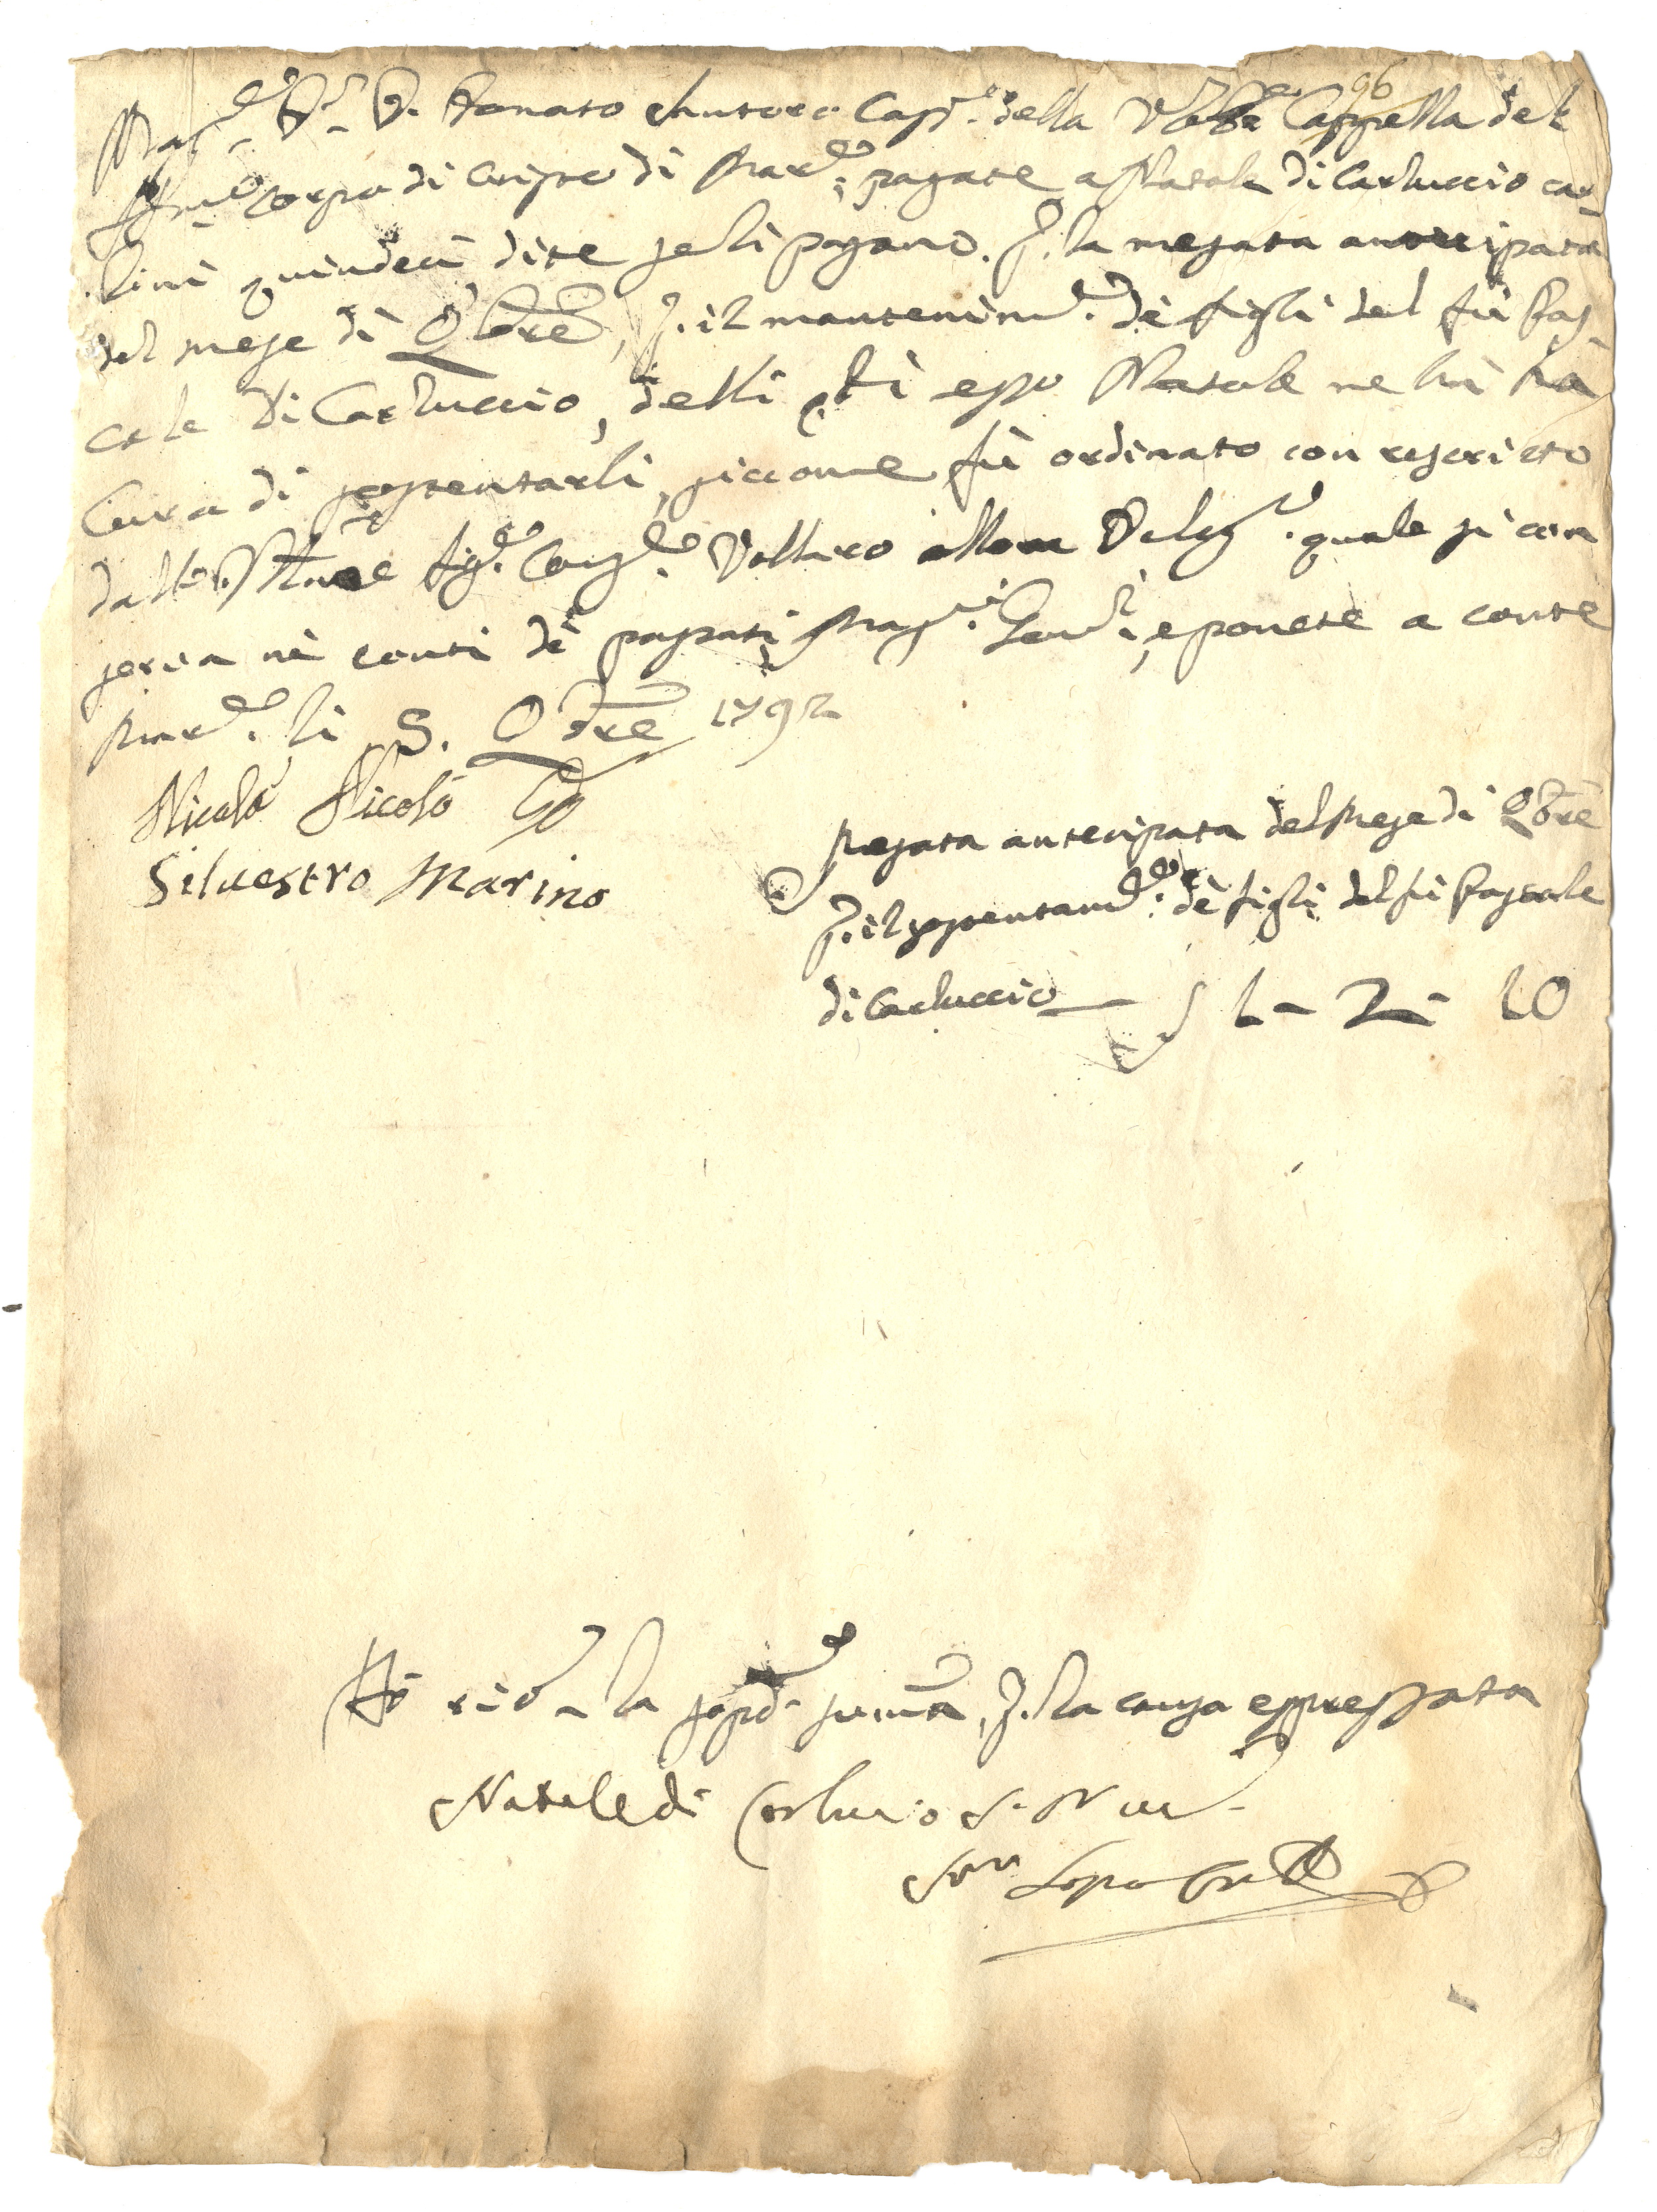 96
Mag.co D.r D. Donato Cantore Cass.re della Ve.ble Cappella del
SS.mo Corpo di Cristo di Mar.o; pagate a Natale di Carluccio car-
lini quindeci dite se li pagano. P. la mesata antecipata
del mese di 8bre, P. il mantenim.to dè figli del fù Pas
cale di Carluccio, delli q.li esso Natale ne hà hà
Cura di sostentarli, siccome fù ordinato con rescritto
dall' Ill.mo Sig.r Consig.re Vollaro Deleg.to quale si con
serva nè conti dè passati Mag.ci Gov.ri, e ponete a conte
Mar.o li 3. 8bre 1792
Nicolò Nicolò Go
Silvestro Marino
Mesata antecipata del Mese di 8bre
P. il sostentam.to dè figli del fù Pascale
di Carluccio — 1 - 2 - 10
Hò ric.to la sop.a summa, P. la causa espressata
Natale di Carluccio